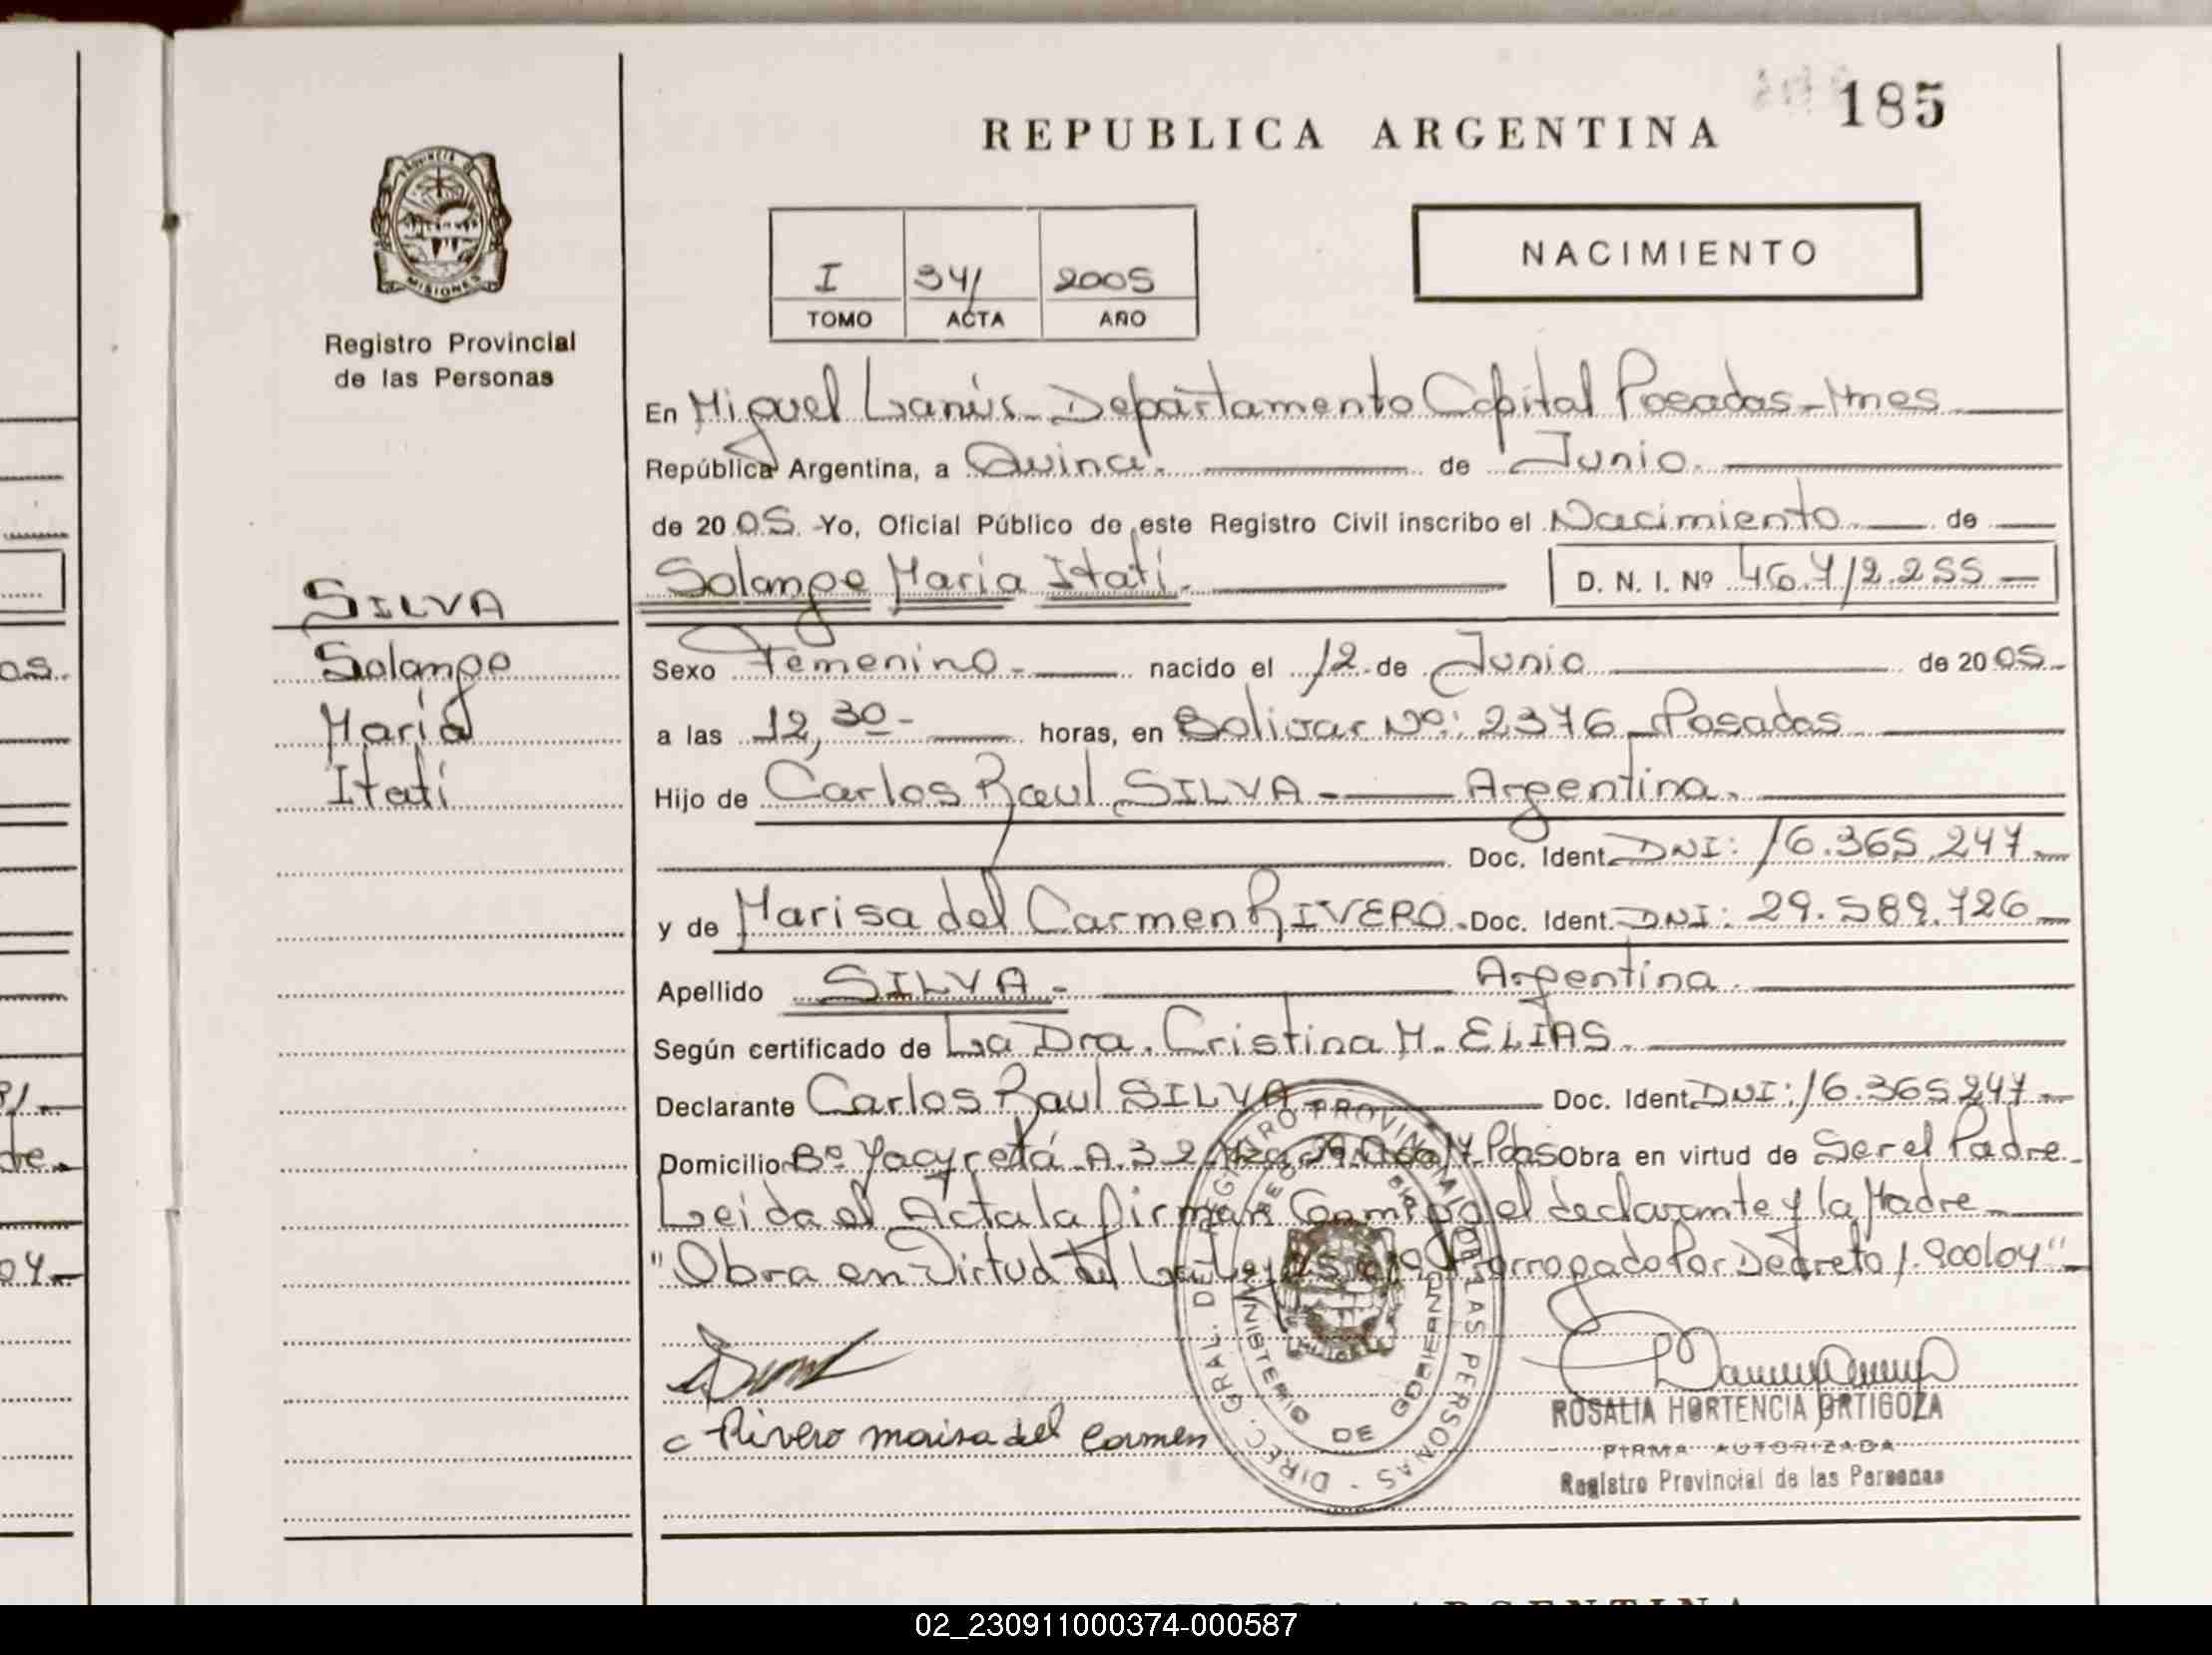 185
REPUBLICA ARGENTINA
PROVINCIA DE
MISIONES
Registro Provincial
de las Personas
I 341 2005
TOMO ACTA AÑO
NACIMIENTO
En Miguel Lanús - Departamento Capital Posadas - Mnes
República Argentina, a Quince. de Junio.
de 2005. Yo, Oficial Público de este Registro Civil inscribo el Nacimiento. de
Solange María Itatí. D. N. I. Nº 46.712.255
SILVA
Solange
María
Itatí
Sexo Femenino. nacido el 12 de Junio de 2005.
a las 12,30- horas, en Bolivar Nº: 2376 - Posadas
Hijo de Carlos Raul SILVA - Argentina.
Doc. Ident. DNI: 16.365.247.
y de Marisa del Carmen RIVERO. Doc. Ident. DNI: 29.589.726
Apellido SILVA - Argentina.
Según certificado de La Dra. Cristina M. ELIAS.
Declarante Carlos Raul SILVA Doc. Ident. DNI: 16.365247-
Domicilio Bº Yacyretá A.32 Pdas Obra en virtud de Ser el Padre.
Leida el Acta la firman Conmigo el declarante y la Madre
"Obra en Virtud Prorrogado Por Decreto 1.900/04"
DIREC. GRAL. DEL REGISTRO PROVINCIAL DE LAS PERSONAS -
MINISTERIO DE GOBIERNO
Rivero marisa del Carmen
ROSALIA HORTENCIA ORTIGOZA
FIRMA AUTORIZADA
Registro Provincial de las Personas
02_230911000374-000587